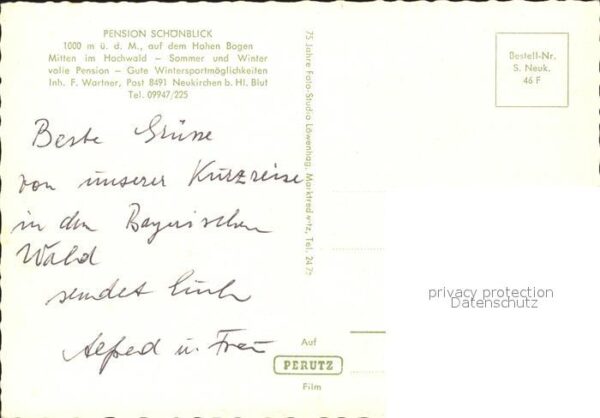 PENSION SCHÖNBLICK
1000 m ü. d. M., auf dem Hohen Bogen
Mitten im Hochwald – Sommer und Winter
volle Pension – Gute Wintersportmöglichkeiten
Inh. F. Wartner, Post 8491 Neukirchen b. Hl. Blut
Tel. 09947/225
Beste Grüsse
von unserer Kurzreise
in den Bayerischen
Wald
sendet Euch
Alfred u. Frau
75 Jahre Foto-Studio Löwenhag, Marktredwitz, Tel. 24 75
Bestell-Nr.
S. Neuk.
46 F
privacy protection
Datenschutz
Auf
PERUTZ
Film